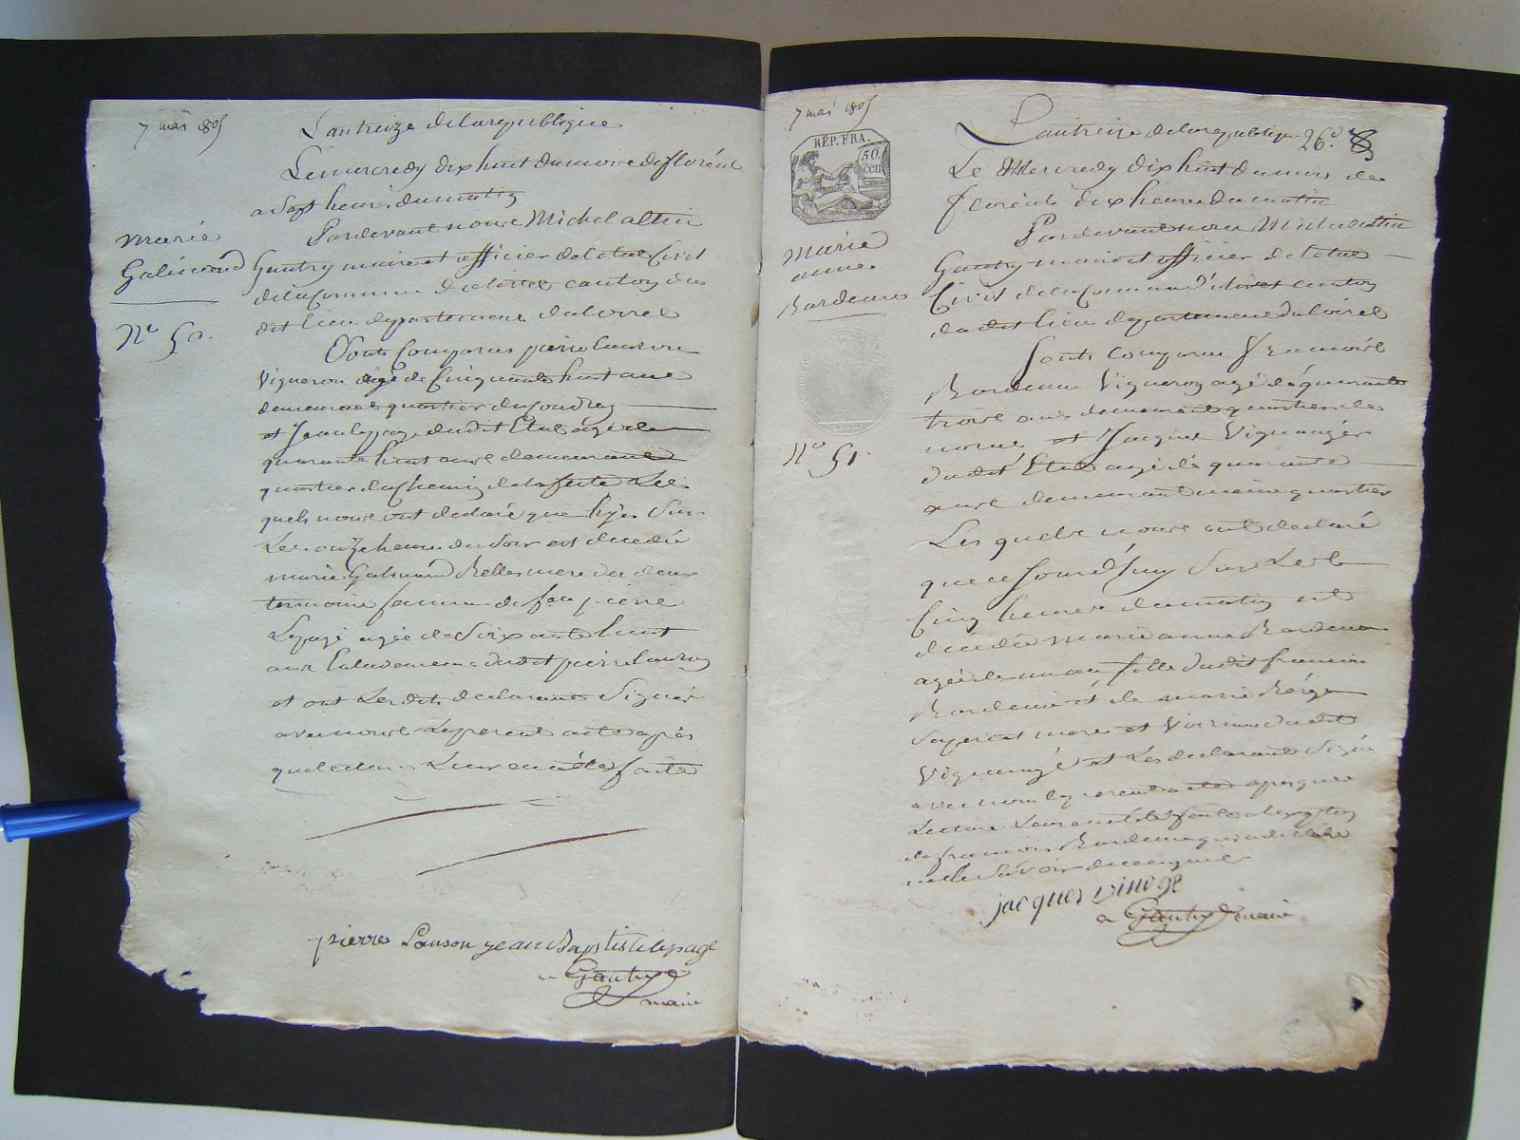 7 mai 1805
L'an treize de la republique
Le mercredy dix huit du mois de floréal
a sept heures du matin
Pardevant nous Michel
marie
Galimard
Gautry maire et officier de l'etat Civil
de la Commune canton du
dit lieu departement du Loiret
No 50.
Sont Comparus pierre Lauson
Vigneron agé de Cinquante huit ans
demeurant quartier du Coudray
et Jean lepage dudit Etat agé de
quarante huit ans demeurant
quartier du Chemin de la ferté Les
quels nous ont declaré que hyer Sur
Les onze heures du Soir est decedée
marie Galimard Belle mere des deux
temoins femme de feu pierre
Lepage agée de Soixante huit
ans En la demeure dudit pierre Lauson
et ont Les dits declarants Signés
avec nous Le present acte après
que lecture Leur en a été faite
pierre Lauson jean Baptiste lepage
Gautry
maire
7 mai 1805
REP. FRA.
50
cen
L'an treize de la republique 26e
Le Mercredy dix huit du mois de
floréal dix heures du matin
Pardevant nous Michel
marie
anne
Bordeaux
Gautry maire et officier de l'etat
Civil de la Commune canton
du dit lieu departement du Loiret
Sont Comparus
Bordeaux Vigneron agé de quarante
trois ans demeurant quartier de
No 51.
et Jacques
dudit Etat agé de quarante
ans demeurant meme quartier
Les quels nous ont declaré
que ce Jourd'huy Sur Les
Cinq heures du matin est
decedée marie anne Bordeaux
agée de un an fille dudit francois
Bordeaux et de marie
Ses pere et mere et Voisin dudit
et Les declarants Signé
avec nous Le present acte apres que
Lecture Leur en a été faite a l'exception
de francois Bordeaux qui a declaré
ne Savoir
jacques
Gautry maire